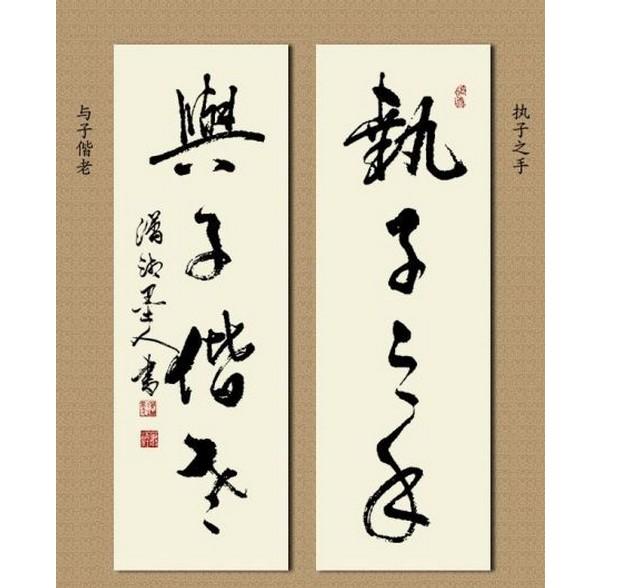 执子之手
執子之手
與子偕老
潇湘墨人书
与子偕老